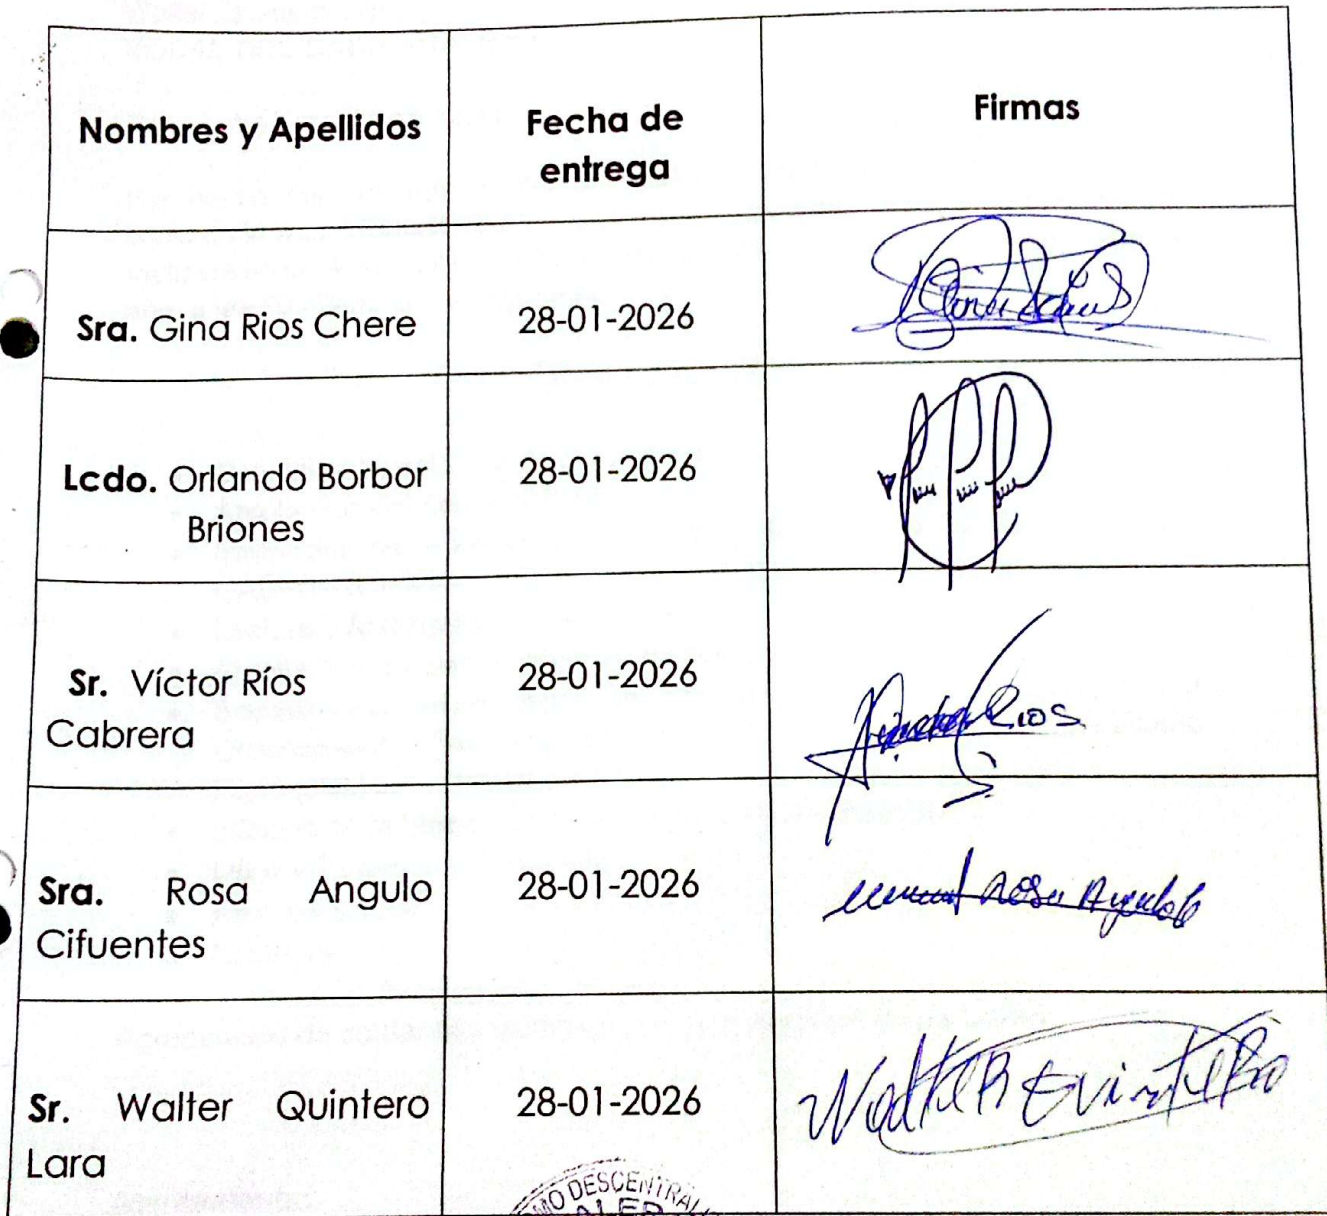 Nombres y Apellidos
Fecha de
entrega
Firmas
Sra. Gina Rios Chere
28-01-2026
Lcdo. Orlando Borbor
Briones
28-01-2026
Sr. Víctor Ríos
Cabrera
28-01-2026
Rios
Sra. Rosa Angulo
Cifuentes
28-01-2026
Rosa Angulo
Sr. Walter Quintero
Lara
28-01-2026
Walter Quintero
MO DESCENTRAL